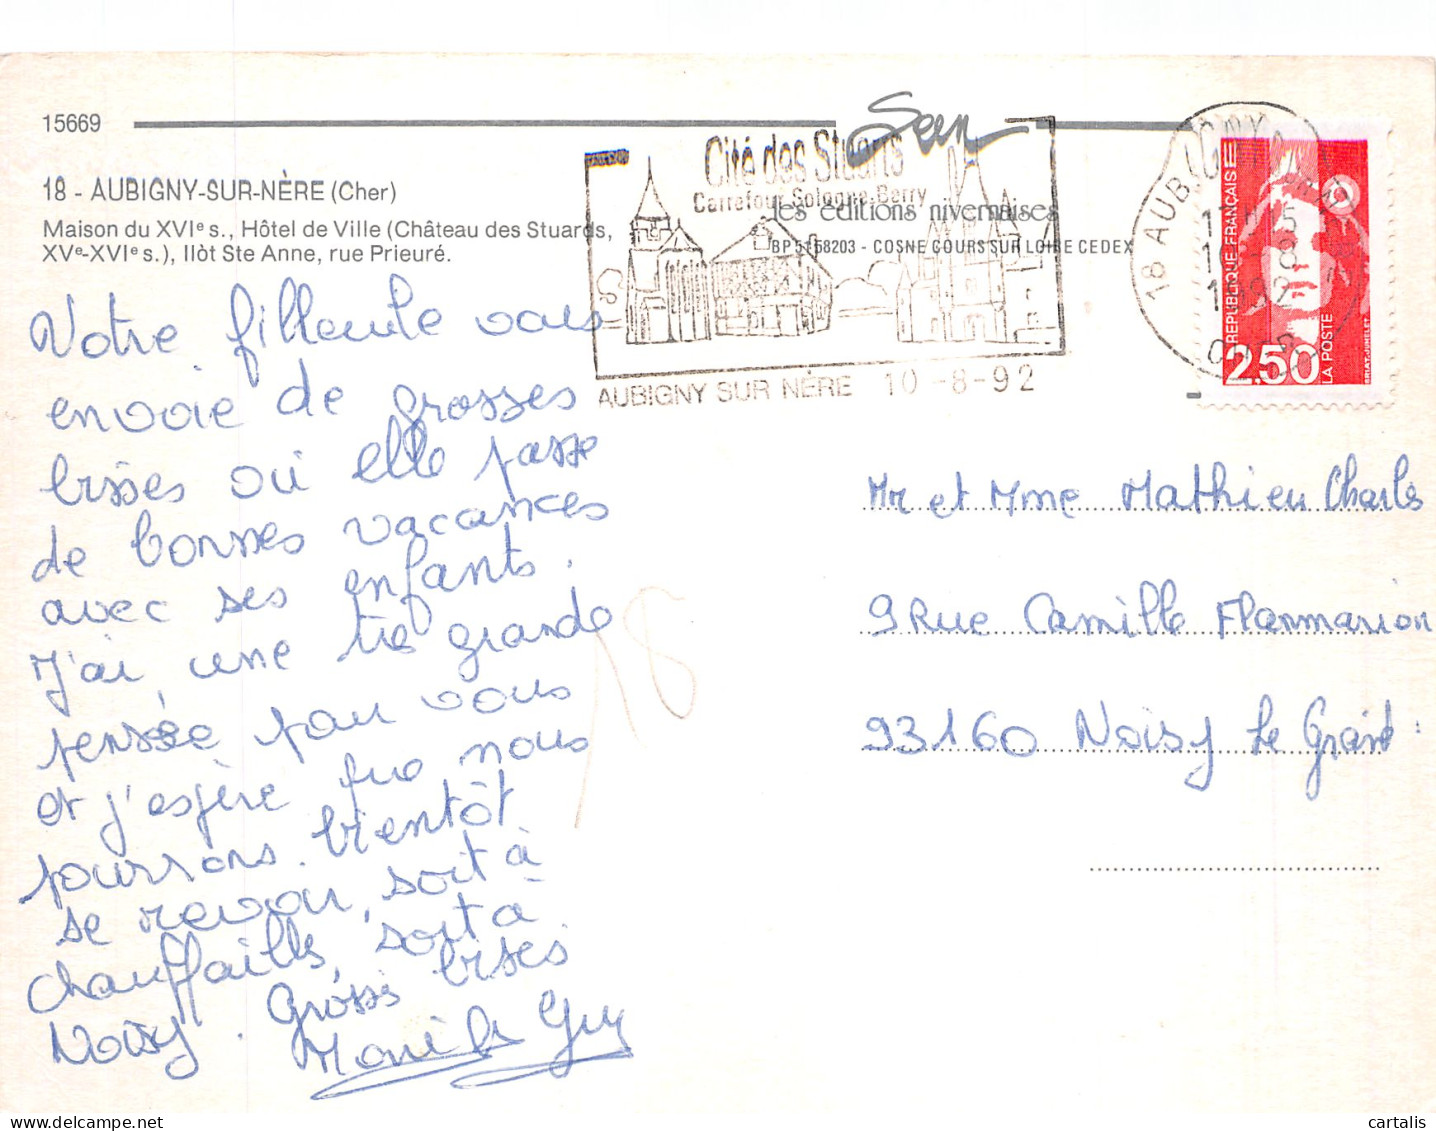 15669
18 - AUBIGNY-SUR-NÈRE (Cher)
Maison du XVIe s., Hôtel de Ville (Château des Stuards,
XVe-XVIe s.), Ilôt Ste Anne, rue Prieuré.
Cité des Stuarts
Carrefour Sologne-Berry
les éditions nivernaises
BP 51 58203 - COSNE COURS SUR LOIRE CEDEX
AUBIGNY SUR NÈRE 10 -8-92
18 AUBIGNY
RÉPUBLIQUE FRANÇAISE
2,50
LA POSTE
Votre filleule vous
envoie de grosses
bises où elle passe
de bonnes vacances
avec ses enfants.
J'ai une tre grande
pensée pour vous
et j'espère que nous
pourrons bientôt
se revoir, soit à
Chauffailles, soit à
Noisy. Grosses bises
Guy
Mr et Mme Mathieu Charles
9 Rue Camille Flammarion
93160 Noisy Le Grand
18
cartalis